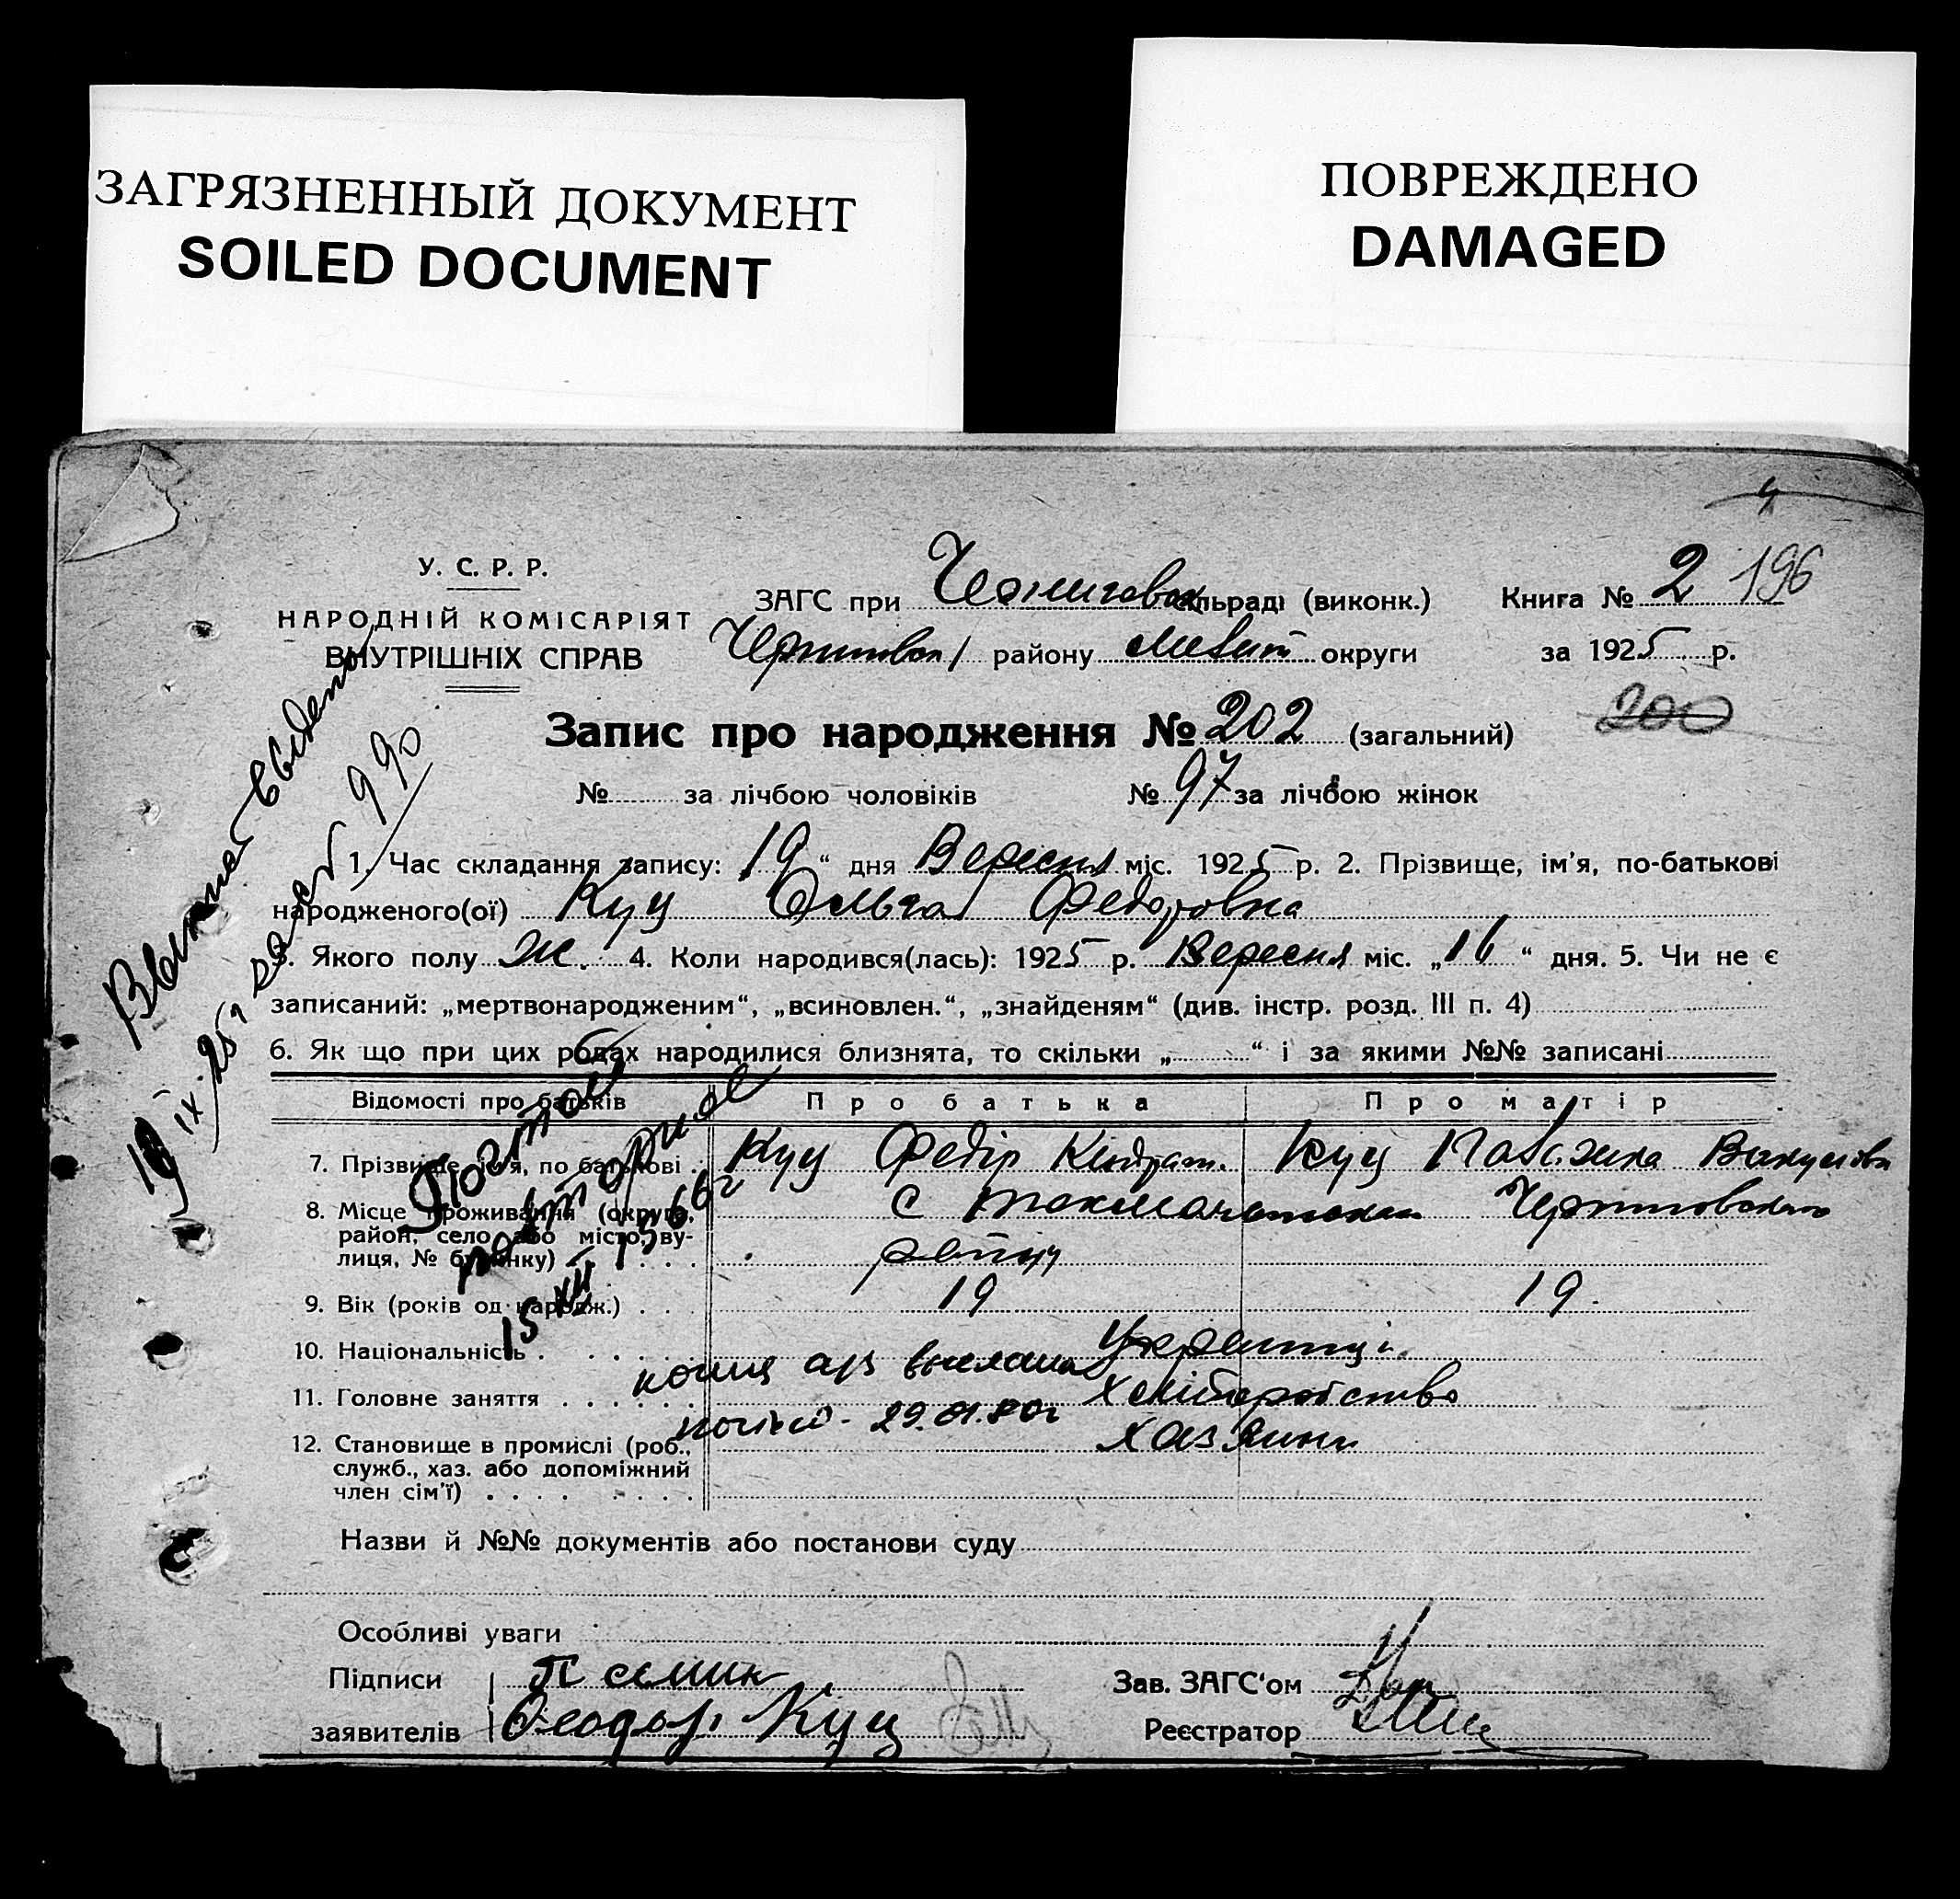 ЗАГРЯЗНЕННЫЙ ДОКУМЕНТ
SOILED DOCUMENT
ПОВРЕЖДЕНО
DAMAGED
У. С. Р. Р.
НАРОДНІЙ КОМІСАРІЯТ
ВНУТРІШНІХ СПРАВ
ЗАГС при сільраді (виконк.)
району округи
Книга № 2 196
за 1925 р.
200
Запис про народження № 202 (загальний)
№ за лічбою чоловіків № 97 за лічбою жінок
1. Час складання запису: 19 “ дня Вересня міс. 1925 р. 2. Прізвище, ім'я, по-батькові
народженого(ої) Куц Ольга Федоровна
3. Якого полу Ж. 4. Коли народився(лась): 1925 р. Вересня міс. „16 “ дня. 5. Чи не є
записаний: „мертвонародженим“, „всиновлен.“, „знайденям“ (див. інстр. розд. III п. 4)
6. Як що при цих родах народилися близнята, то скільки „ “ і за якими №№ записані
Відомості про батьків Про батька Про матір
7. Прізвище, ім'я, по батькові Куц Федір Кіндрат. Куц
8. Місце проживання (округа, с
район, село або місто, ву- району
лиця, № будинку)
9. Вік (років од народж.) 19 19.
10. Національність Українці
11. Головне заняття Хліборобство
12. Становище в промислі (роб., хазяини
служб., хаз. або допоміжний
член сім'ї)
990
повторное
15 XII 1966 г
29.01.80г
Назви й №№ документів або постанови суду
Особливі уваги
Підписи
заявителів Феодор Куц
Зав. ЗАГС'ом
Реєстратор